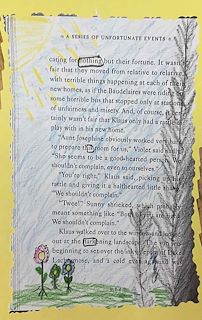 A SERIES OF UNFORTUNATE EVENTS
caring for nothing but their fortune. It wasn't
fair that they moved from relative to relative,
with terrible things happening at each of their
new homes, as if the Baudelaires were riding
some horrible bus that stopped only at stations
of unfairness and misery. And, of course, it
tainly wasn't fair that Klaus only had a rattle to
play with in his new home.
"Aunt Josephine obviously worked very
to prepare this room for us," Violet said
"She seems to be a good-hearted person.
shouldn't complain, even to ourselves."
"You're right," Klaus said, picking up
rattle and giving it a halfhearted little
"We shouldn't complain."
"Twee!" Sunny shrieked, which
meant something like "Both of you are
We shouldn't complain."
Klaus walked over to the window and looked
out at the darkening landscape. The sun
beginning to set over the inky depths of Lake
Lachrymose, and a cold evening wind